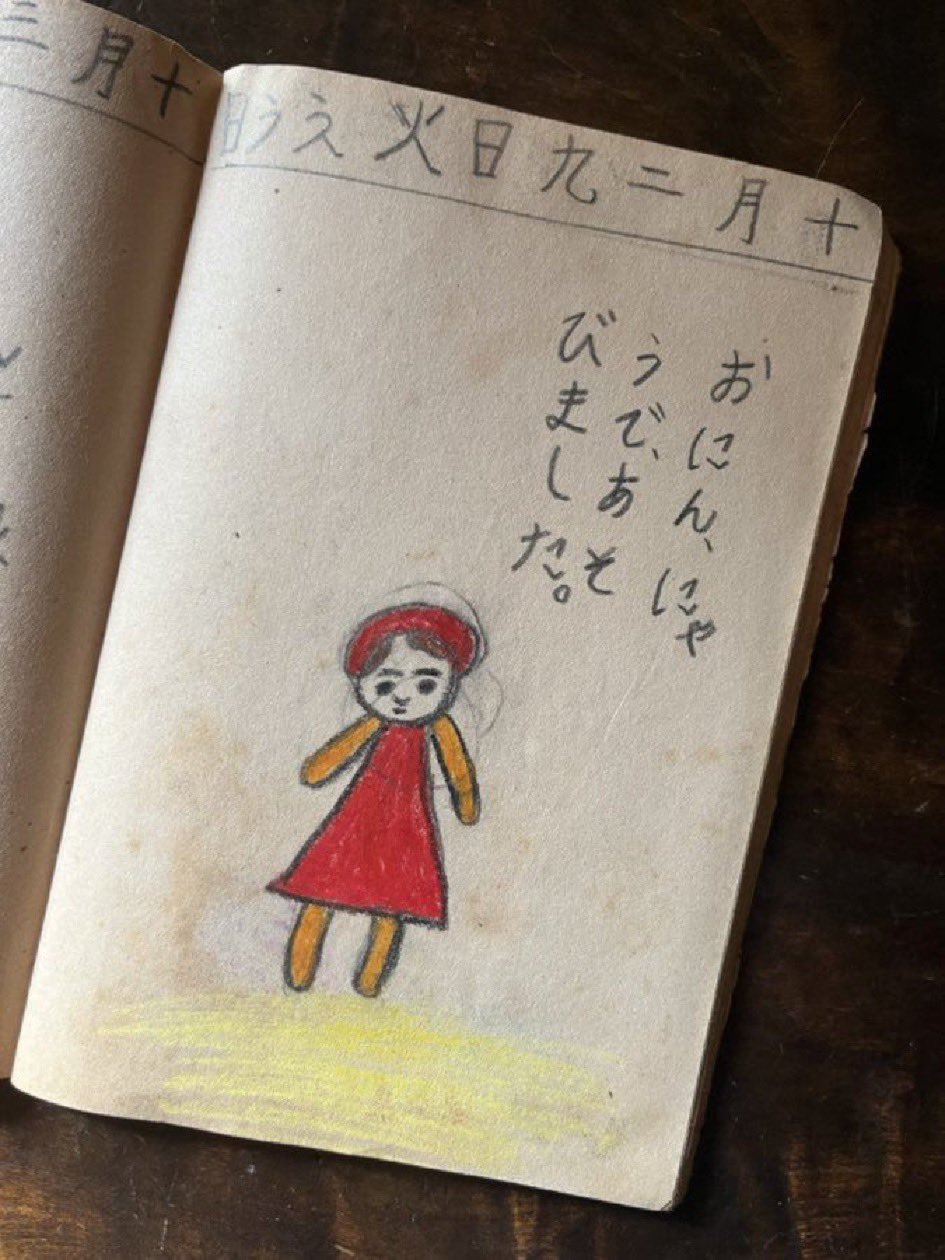 十月二九日火ようえ日
おにん、にゃ
うで、あそ
びました。
十月三